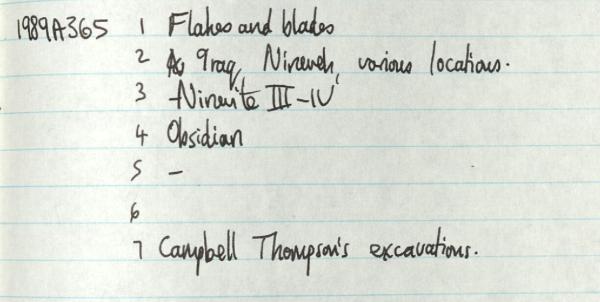 1989A365 1 Flakes and blades
2 Iraq, Nineveh, various locations.
3 Ninevite III-IV
4 Obsidian
5 -
6
7 Campbell Thompson's excavations.